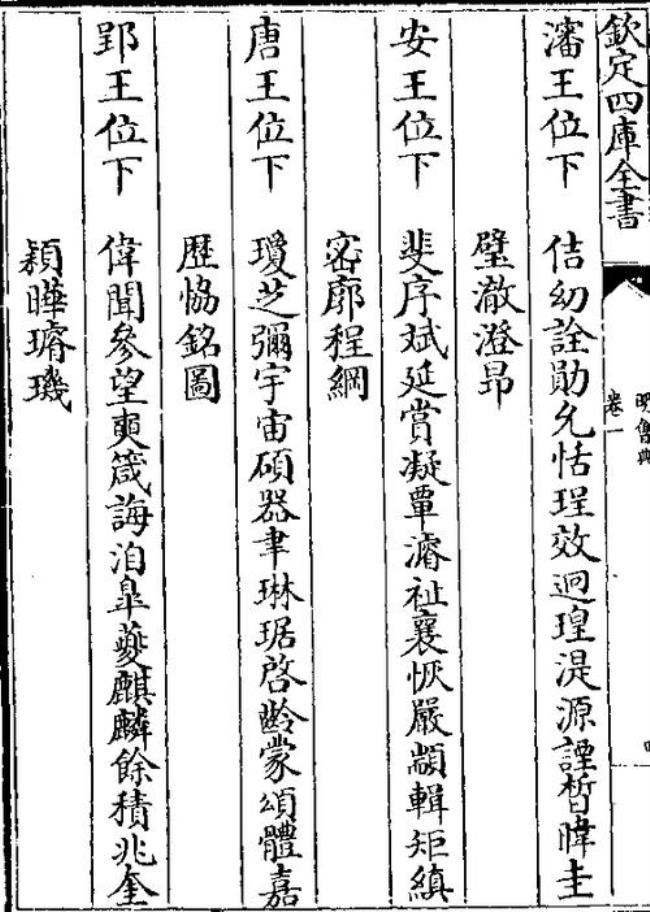 欽定四庫全書
明會典
卷一
瀋王位下 佶幼詮勛允恬珵效迥瑝湜源諲晳暐圭
璧澈澄昂
安王位下 斐序斌延賞凝覃濬祉襄恢嚴顓輯矩縝
密廓程綱
唐王位下 瓊芝彌宇宙碩器聿琳琚啓齡蒙頌體嘉
歴協銘圖
郢王位下 偉聞參望奭箴誨洎臯夔麒麟餘積兆奎
穎曄璿璣